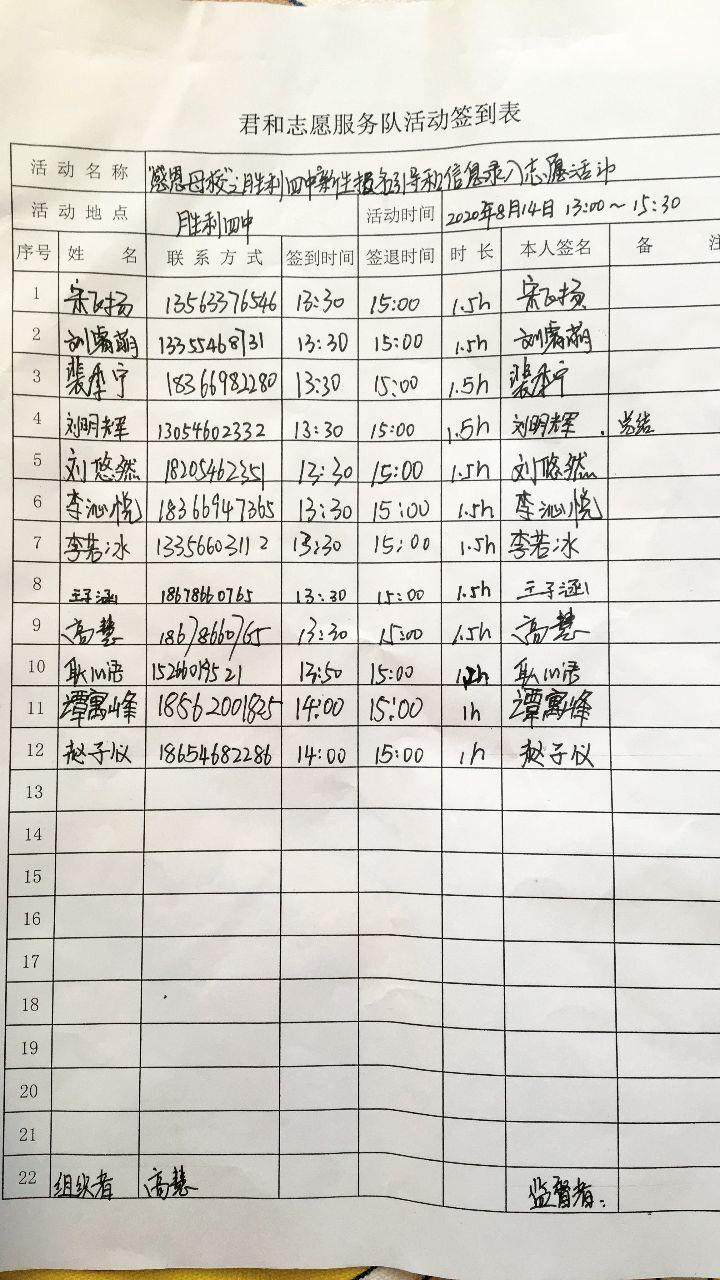 君和志愿服务队活动签到表
活动名称 "感恩母校"之胜利四中新生报名引导和信息录入志愿活动
活动地点 胜利四中 活动时间 2020年8月14日 13:00~15:30
序号 姓名 联系方式 签到时间 签退时间 时长 本人签名 备注
1 宋飞扬 13563376546 13:30 15:00 1.5h 宋飞扬
2 刘睿萌 13355468731 13:30 15:00 1.5h 刘睿萌
3 裴季宁 18366982280 13:30 15:00 1.5h 裴季宁
4 刘明辉 13054602332 13:30 15:00 1.5h 刘明辉 . 总结
5 刘悠然 18205462351 13:30 15:00 1.5h 刘悠然
6 李沁悦 18366947365 13:30 15:00 1.5h 李沁悦
7 李若冰 13356603112 13:30 15:00 1.5h 李若冰
8 王子涵 18678660765 13:30 15:00 1.5h 王子涵
9 高慧 18678660765 13:30 15:00 1.5h 高慧
10 15266019521 13:50 15:00
11 谭寓峰 18562001825 14:00 15:00 1h 谭寓峰
12 赵子仪 18654682286 14:00 15:00 1h 赵子仪
13
14
15
16
17
18
19
20
21
22 组织者 高慧 监督者: